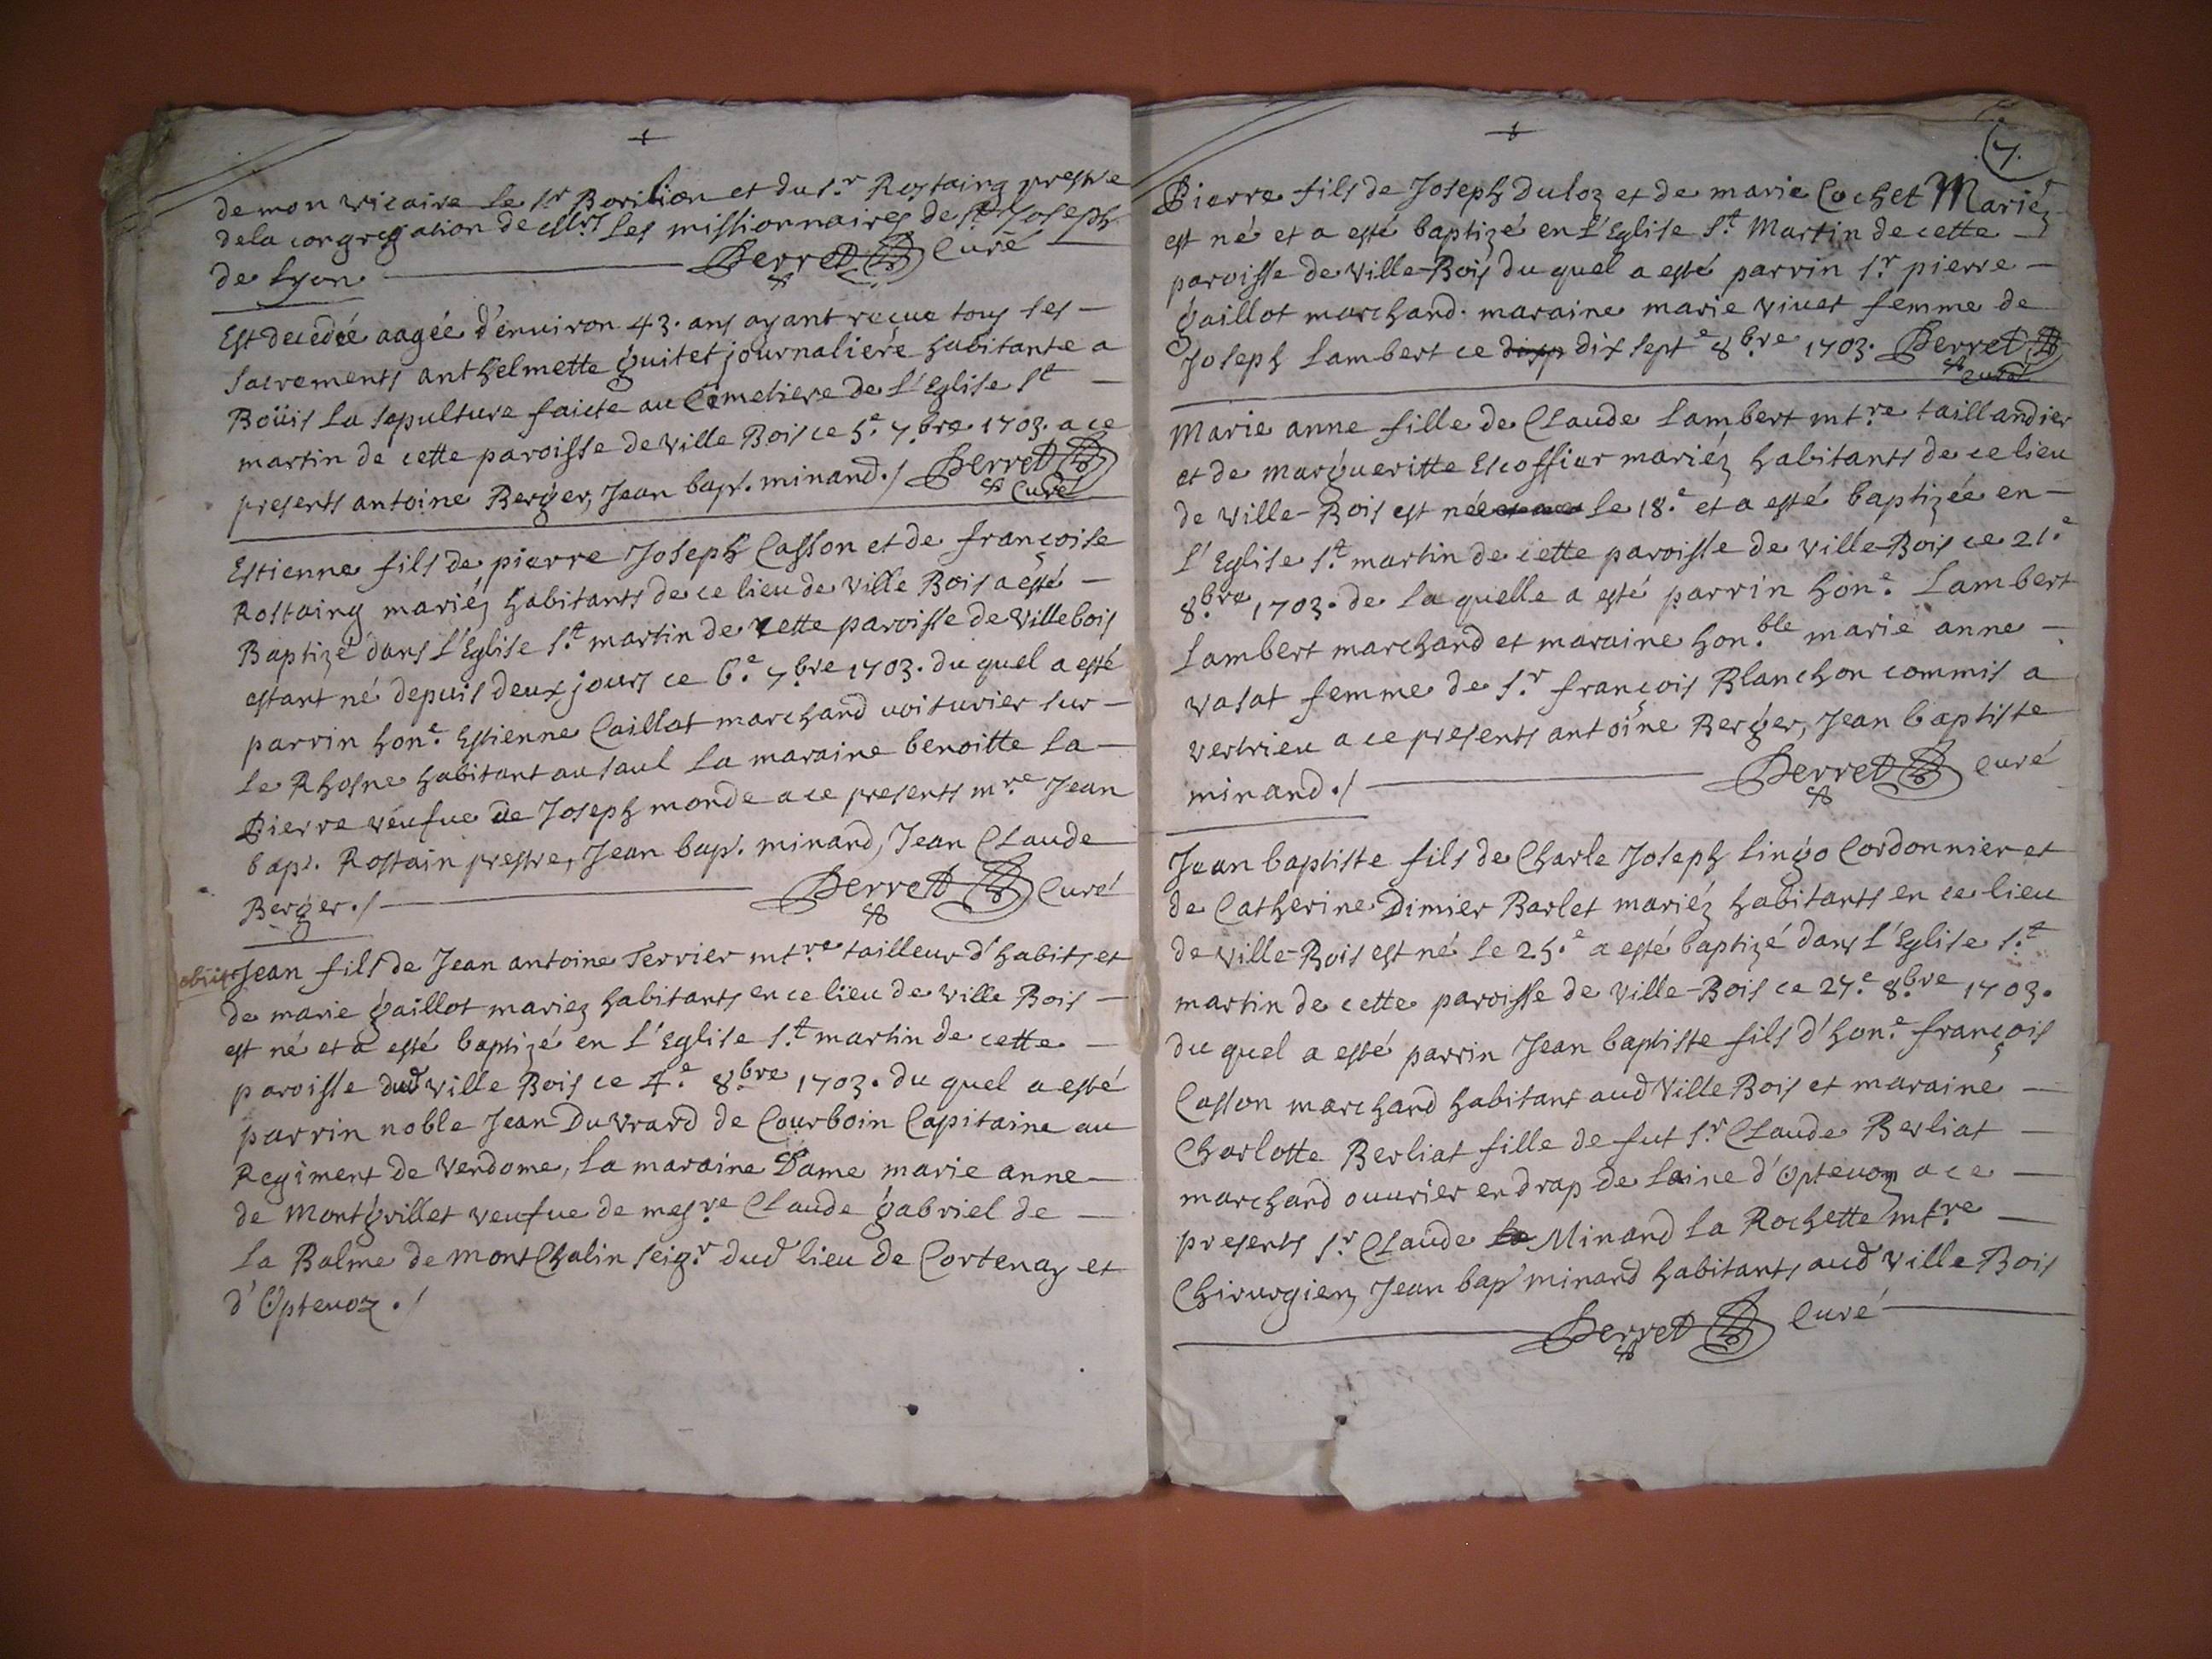 demon vicaire le sr Borilion et du s.r Rostaing prestre
dela congregation de Mrs les missionnaires de st Joseph
de lyon Perret Curé
Est decedée aagée d'environ 43. ans ayant reçue tous ses
sacrements anthelmette guitet journaliere habitante a
Boüis La sepulture faicte au Cimetiere de L'Eglise st
martin de cette paroisse de ville Bois ce 5.e 7.bre 1703. a ce
presents antoine Berger, Jean bap.t minand./ Perret
Curé
Estienne fils de pierre Joseph Casson et de françoise
Rostaing mariéz habitants de ce lieu de ville Bois a esté
Baptizé dans L'Eglise s.t martin de cette paroisse de villebois
estant né depuis deux jours ce 6.e 7.bre 1703. du quel a esté
parrin hon.e Estienne Caillat marchand voiturier sur
le Rhosne habitant au saul La maraine benoitte la
Pierre veufue de Joseph monde a ce presents m.re Jean
bap.t Rostain prestre, Jean bap.t minand, Jean Claude
Berger./ Perret Curé
obiit Jean fils de Jean antoine Terrier mt.re tailleur d'habits et
de marie gaillot mariez habitants en ce lieu de ville Bois
est né et a esté baptizé en L'Eglise s.t martin de cette
paroisse dud ville Bois ce 4.e 8.bre 1703. du quel a esté
parrin noble Jean Duvrard de Courboin Capitaine au
Regiment de Vendome, La maraine Dame marie anne
de Montgrillet veufue de mes.re Claude gabriel de
La Balme de montChalin seig.r dud lieu de Cortenay et
d'Optevoz./
7.
Pierre fils de Joseph Duloz et de marie Cochet Mariéz
est né et a esté baptizé en L'Eglise s.t Martin de cette
paroisse de ville-Bois du quel a esté parrin s.r pierre
gaillot marchand. maraine marie vivet femme de
Joseph Lambert ce dix sept.e 8.bre 1703. Perret
Curé
Marie anne fille de Claude Lambert mt.re taillandier
et de margueritte Escoffier mariéz habitants de ce lieu
de ville-Bois est née le 18.e et a esté baptizée en
L'Eglise s.t martin de cette paroisse de ville-Bois ce 21.e
8.bre 1703. de La quelle a esté parrin hon.e Lambert
Lambert marchand et maraine hon.ble marie anne
vasat femme de s.r françois Blanchon commis a
vertrieu a ce presents antoine Berger, Jean baptiste
minand./ Perret Curé
Jean baptiste fils de Charle Joseph Lingo Cordonnier et
de Catherine Dimier Barlet mariéz habitants en ce lieu
de ville-Bois est né le 25.e a esté baptizé dans L'Eglise s.t
martin de cette paroisse de ville-Bois ce 27.e 8.bre 1703.
du quel a esté parrin Jean baptiste fils d'hon.e françois
Casson marchand habitant aud ville Bois et maraine
Charlotte Berliat fille de fut s.r Claude Berliat
marchand ouurier en drap de laine d'Optevoz a ce
presents s.r Claude Minand La Rochette mt.re
Chirurgien, Jean bap.t minand habitants aud ville Bois
Perret Curé